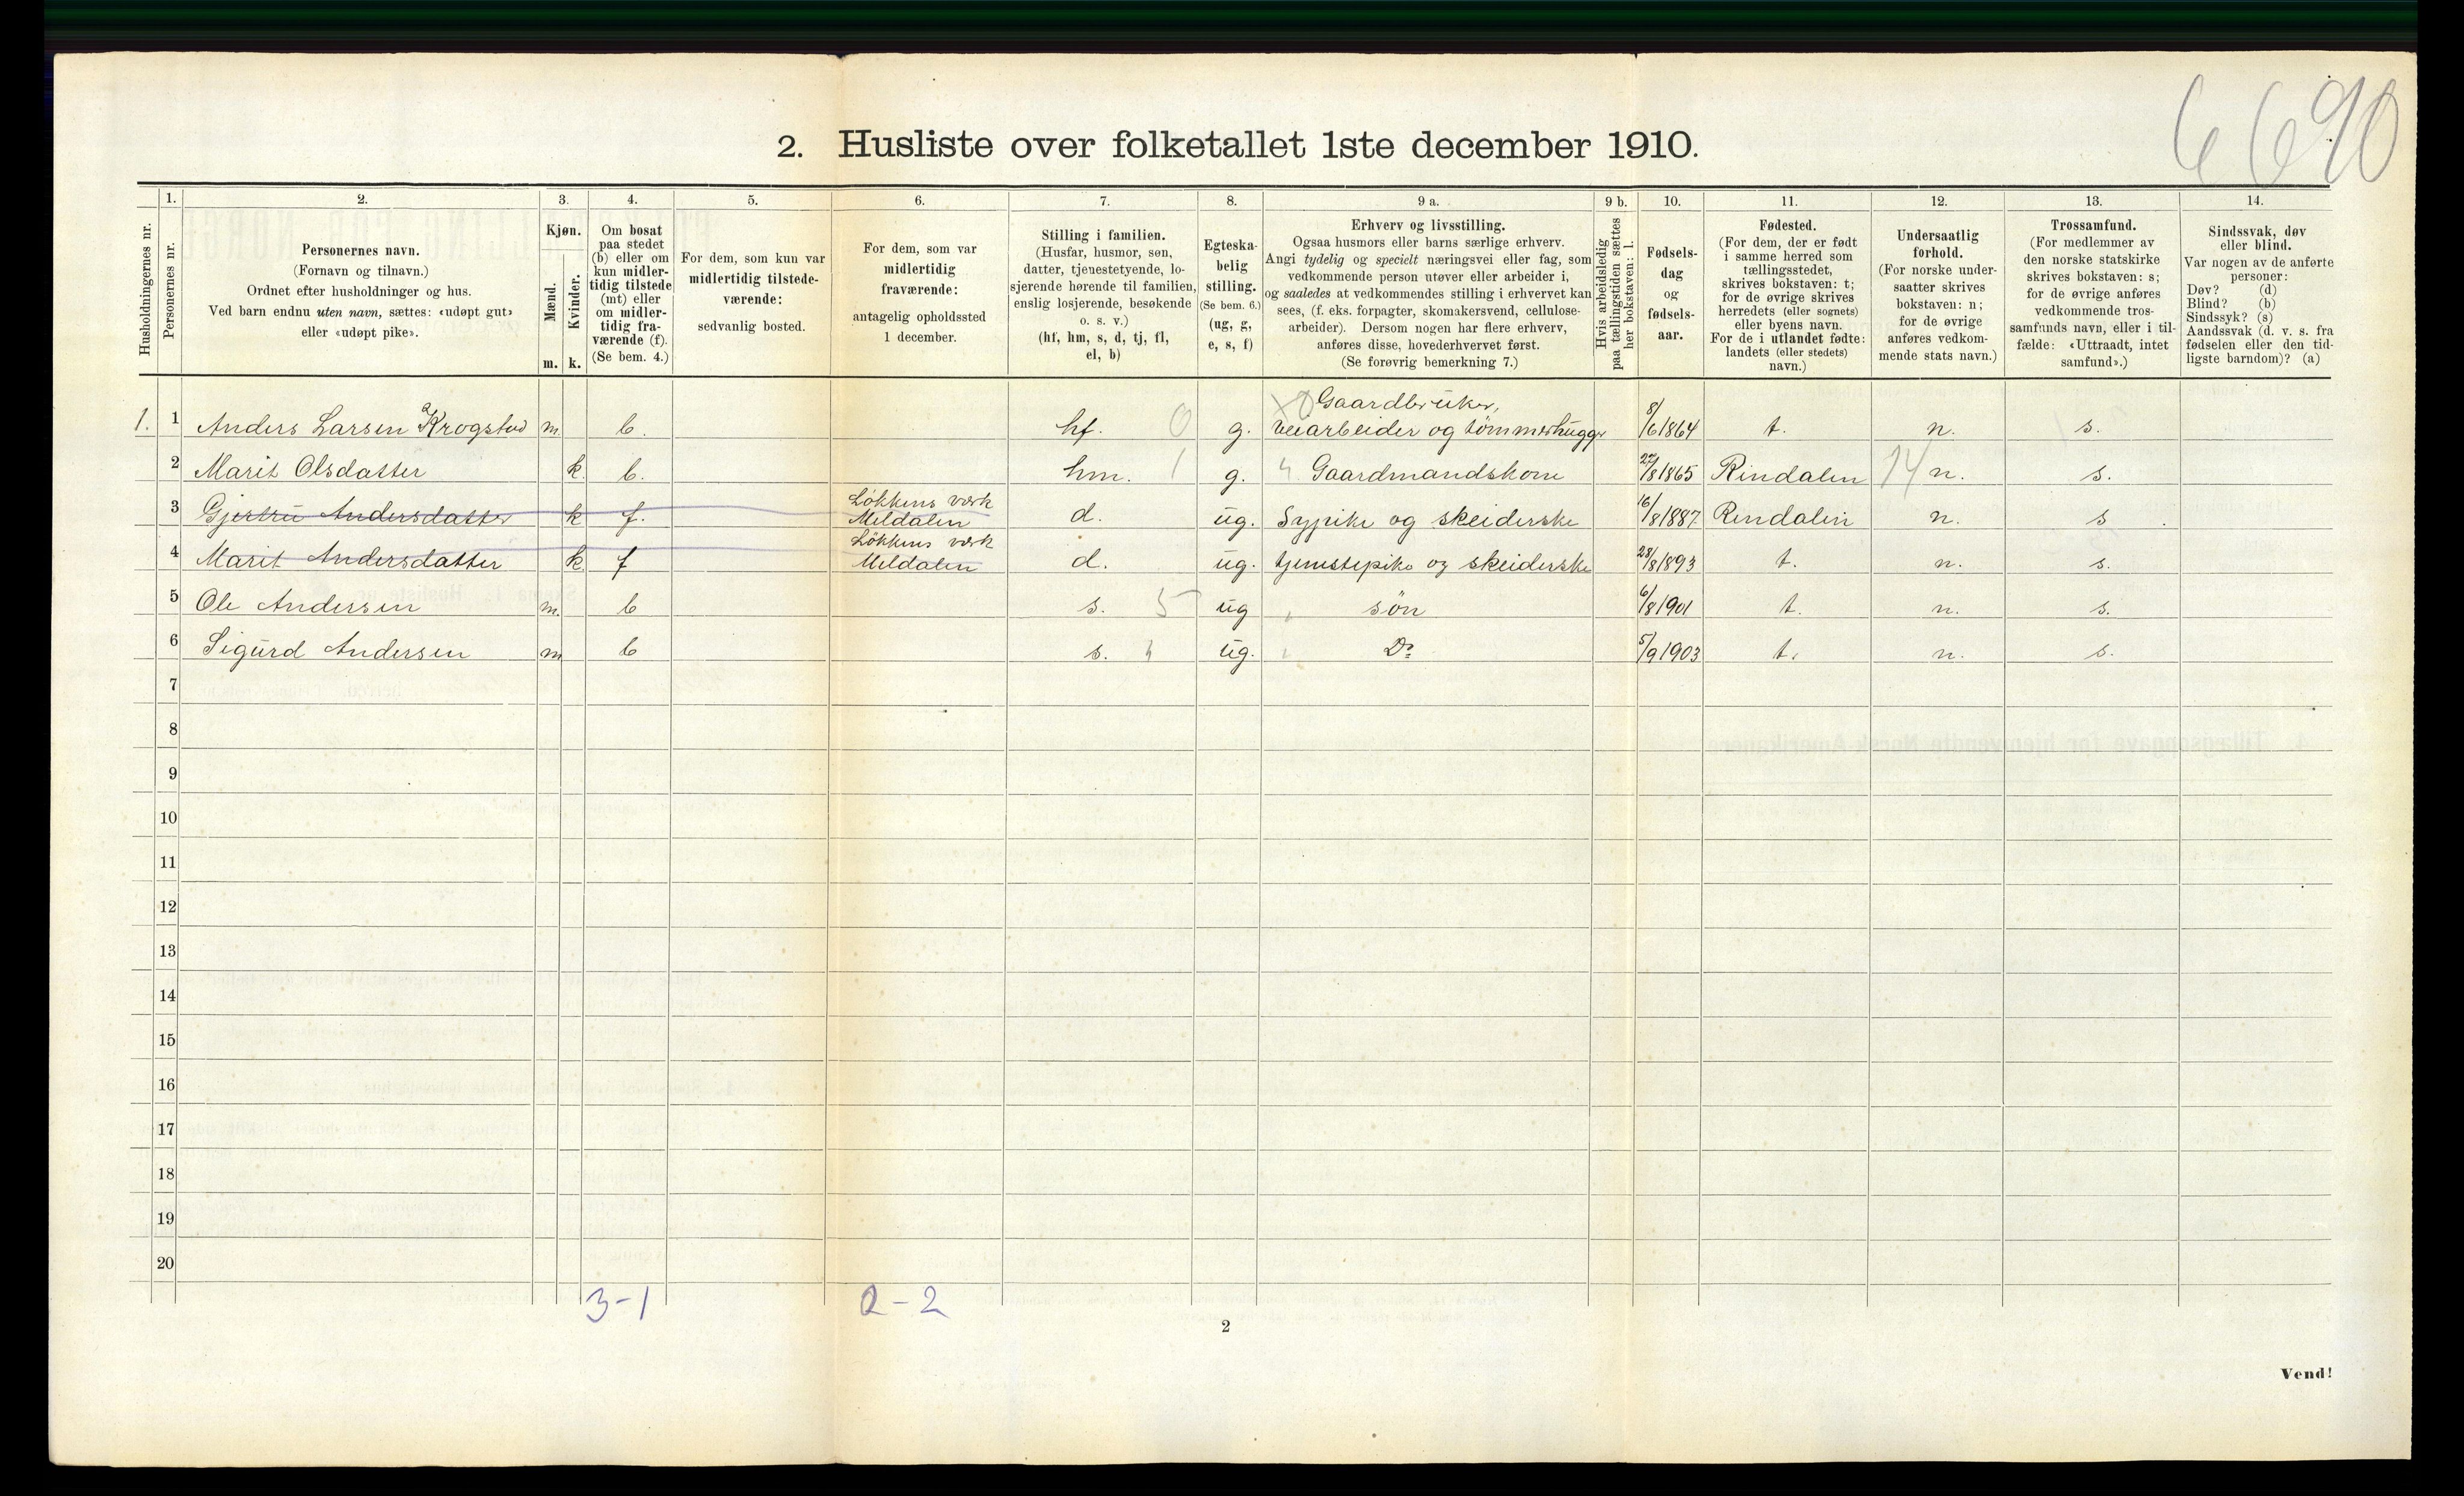 6690
2. Husliste over folketallet 1ste december 1910.
Husholdningernes nr.
1. Personernes nr.
2. Personernes navn.
(Fornavn og tilnavn.)
Ordnet efter husholdninger og hus.
Ved barn endnu uten navn, sættes: «udøpt gut»
eller «udøpt pike».
3. Kjøn.
Mænd. m.
Kvinder. k.
4. Om bosat
paa stedet
(b) eller om
kun midler-
tidig tilstede
(mt) eller
om midler-
tidig fra-
værende (f).
(Se bem. 4.)
5. For dem, som kun var
midlertidig tilstede-
værende:
sedvanlig bosted.
6. For dem, som var
midlertidig
fraværende:
antagelig opholdssted
1 december.
7. Stilling i familien.
(Husfar, husmor, søn,
datter, tjenestetyende, lo-
sjerende hørende til familien,
enslig losjerende, besøkende
o. s. v.)
(hf, hm, s, d, tj, fl,
el, b)
8. Egteska-
belig
stilling.
(Se bem. 6.)
(ug, g,
e, s, f)
9 a. Erhverv og livsstilling.
Ogsaa husmors eller barns særlige erhverv.
Angi tydelig og specielt næringsvei eller fag, som
vedkommende person utøver eller arbeider i,
og saaledes at vedkommendes stilling i erhvervet kan
sees, (f. eks. forpagter, skomakersvend, cellulose-
arbeider). Dersom nogen har flere erhverv,
anføres disse, hovederhvervet først.
(Se forøvrig bemerkning 7.)
9 b. Hvis arbeidsledig
paa tællingstiden sættes
her bokstaven: l.
10. Fødsels-
dag
og
fødsels-
aar.
11. Fødested.
(For dem, der er født
i samme herred som
tællingsstedet,
skrives bokstaven: t;
for de øvrige skrives
herredets (eller sognets)
eller byens navn.
For de i utlandet fødte:
landets (eller stedets)
navn.)
12. Undersaatlig
forhold.
(For norske under-
saatter skrives
bokstaven: n;
for de øvrige
anføres vedkom-
mende stats navn.)
13. Trossamfund.
(For medlemmer av
den norske statskirke
skrives bokstaven: s;
for de øvrige anføres
vedkommende tros-
samfunds navn, eller i til-
fælde: «Uttraadt, intet
samfund».)
14. Sindssvak, døv
eller blind.
Var nogen av de anførte
personer:
Døv? (d)
Blind? (b)
Sindssyk? (s)
Aandssvak (d. v. s. fra
fødselen eller den tid-
ligste barndom)? (a)
1. 1 Anders Larsen Krogstad m. b. hf. 0 g. Gaardbruker, veiarbeider og tømmerhugger 8/6 1864 t. n. s.
2 Marit Olsdatter k. b. hm. 1 g. Gaardmandskone 27/8 1865 Rindalen 14 n. s.
3 Gjertru Andersdatter k f. Løkkens værk Meldalen d. ug. Sypike og skeiderske 16/8 1887 Rindalen n. s
4 Marit Andersdatter k. f Løkkens værk Meldalen d. ug. tjenestepike og skeiderske 28/8 1893 t. n. s.
5 Ole Andersen m. b s. 5 ug søn 6/8 1901 t. n. s.
6 Sigurd Andersen m b s. ug. Do 5/9 1903 t. n. s.
7
8
9
10
11
12
13
14
15
16
17
18
19
20
3-1 2-2
2
Vend!